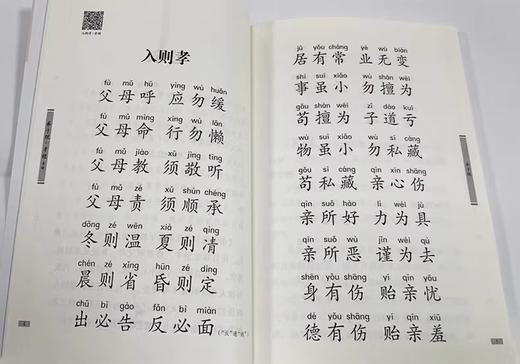 入则孝
fù mǔ hū yìng wù huǎn
父母呼 应勿缓
fù mǔ mìng xíng wù lǎn
父母命 行勿懒
fù mǔ jiào xū jìng tīng
父母教 须敬听
fù mǔ zé xū shùn chéng
父母责 须顺承
dōng zé wēn xià zé qìng
冬则温 夏则凊
chén zé xǐng hūn zé dìng
晨则省 昏则定
chū bì gào fǎn bì miàn
出必告 反必面
jū yǒu cháng yè wú biàn
居有常 业无变
shì suī xiǎo wù shàn wéi
事虽小 勿擅为
gǒu shàn wéi zǐ dào kuī
苟擅为 子道亏
wù suī xiǎo wù sī cáng
物虽小 勿私藏
gǒu sī cáng qīn xīn shāng
苟私藏 亲心伤
qīn suǒ hào lì wèi jù
亲所好 力为具
qīn suǒ wù jǐn wèi qù
亲所恶 谨为去
shēn yǒu shāng yí qīn yōu
身有伤 贻亲忧
dé yǒu shāng yí qīn xiū
德有伤 贻亲羞